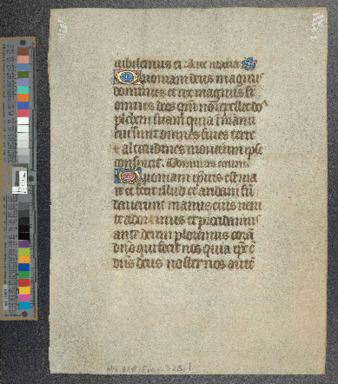 iubilemus ei: Aue maria
Quoniam deus magnus
dominus et rex magnus su
omnes deos qm̄ nō repellet do
plebem suam quia ī manu
eius sunt omnes fines terre
et altitudines montium ipse
conspicit. Dominus tecum
Quoniam ipsius est ma
re et ipse fecit illud et aridam fū
dauerunt manus eius veni
te adoremus et procidamus
ante deum ploremus corā
dn̄o qui fecit nos quia ip̄e ē
dn̄s deus noster nos autē